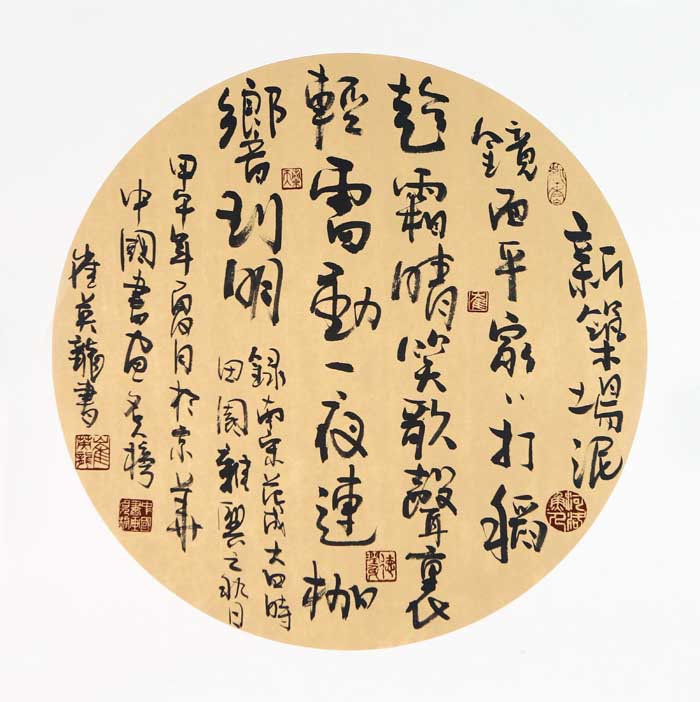 新築場泥
鏡面平家〻打稻
趁霜晴笑歌聲裏
輕雷動一夜連枷
響到明
録南宋范成大四時
田園雜興之秋日
甲午年夏月於京華
中國書画
崔英龍書